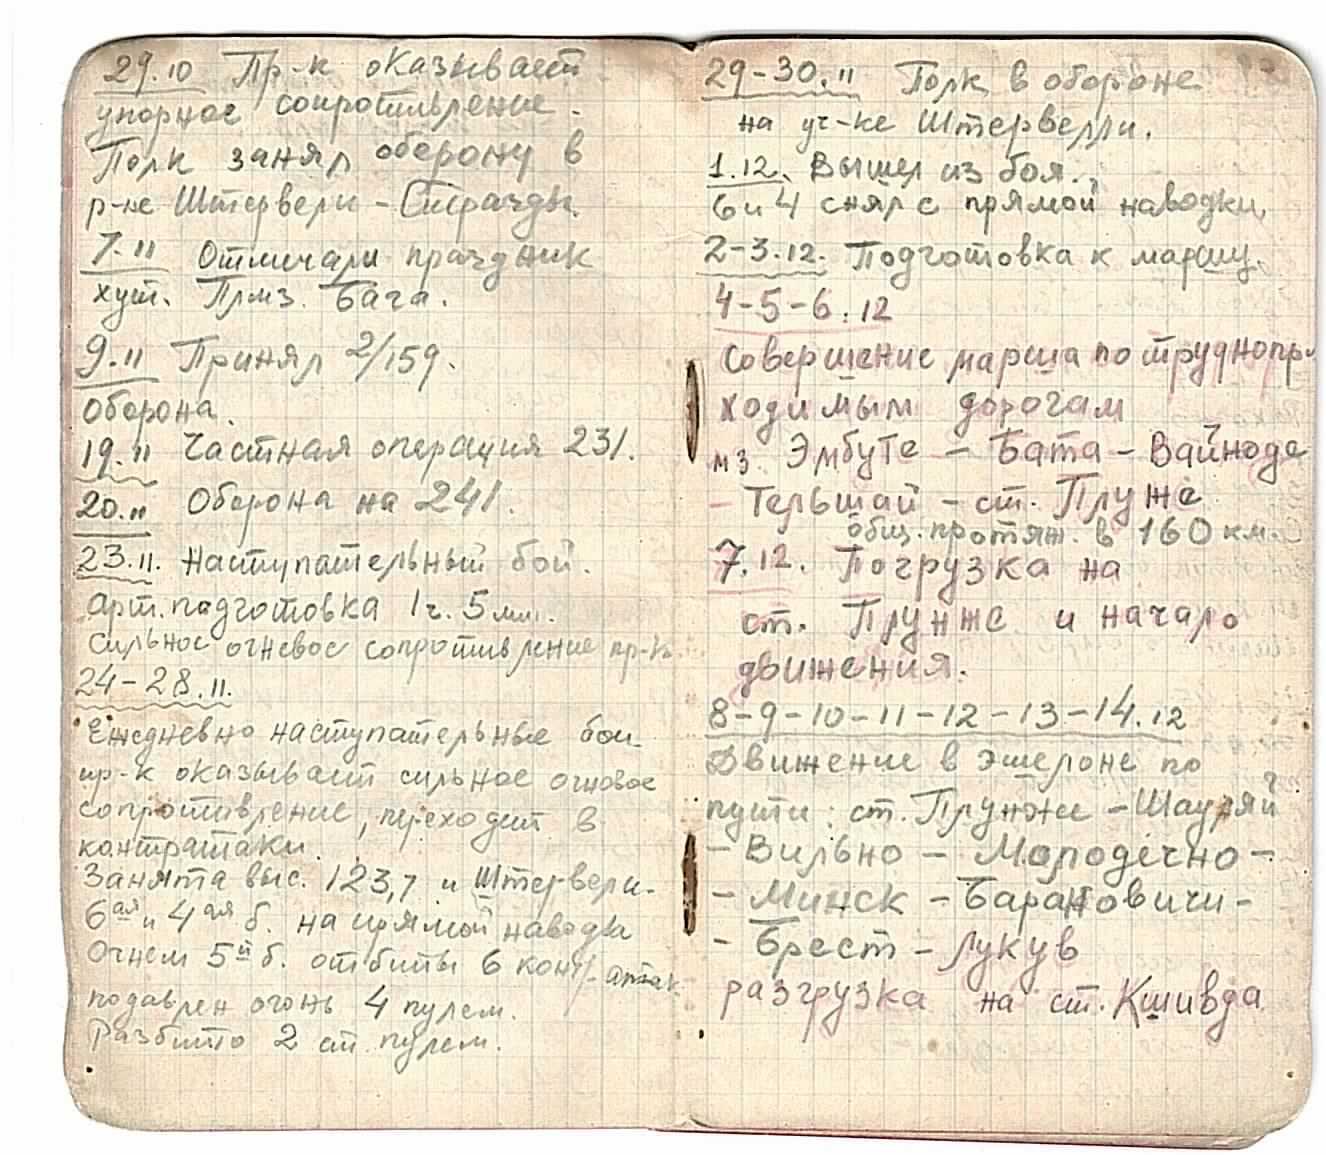 29.10 Пр-к оказывает
упорное сопротивление.
Полк занял оборону в
р-не Штервели - Стразды.
7.11 Отмечали праздник
хут. Плмз. Бата.
9.11 Принял 2/159.
оборона.
19.11 Частная операция 231.
20.11 Оборона на 241.
23.11. Наступательный бой.
Арт. подготовка 1ч. 5мин.
Сильное огневое сопротивление пр-ка.
24-28.11.
Ежедневно наступательные бои
пр-к оказывает сильное огневое
сопротивление, переходит в
контратаки.
Занята выс. 123,7 и Штервели.
6ая и 4ая б. на прямой наводке
Огнем 5й б. отбиты 6 контр-атак
подавлен огонь 4 пулем.
Разбито 2 ст. пулем.
29-30.11 Полк в обороне
на уч-ке Штервелли.
1.12. Вышел из боя.
6 и 4 снял с прямой наводки.
2-3.12. Подготовка к маршу.
4-5-6.12
Совершение марша по труднопро
ходимым дорогам
мз. Эмбуте - Бата - Вайноде
- Тельшай - ст. Плуже
общ. протяж. в 160 км.
7.12. Погрузка на
ст. Плунже и начало
движения.
8-9-10-11-12-13-14.12
Движение в эшелоне по
пути: ст. Плунже - Шауляй
- Вильно - Молодечно -
- Минск - Барановичи -
- Брест - Лукув
разгрузка на ст. Кшивда